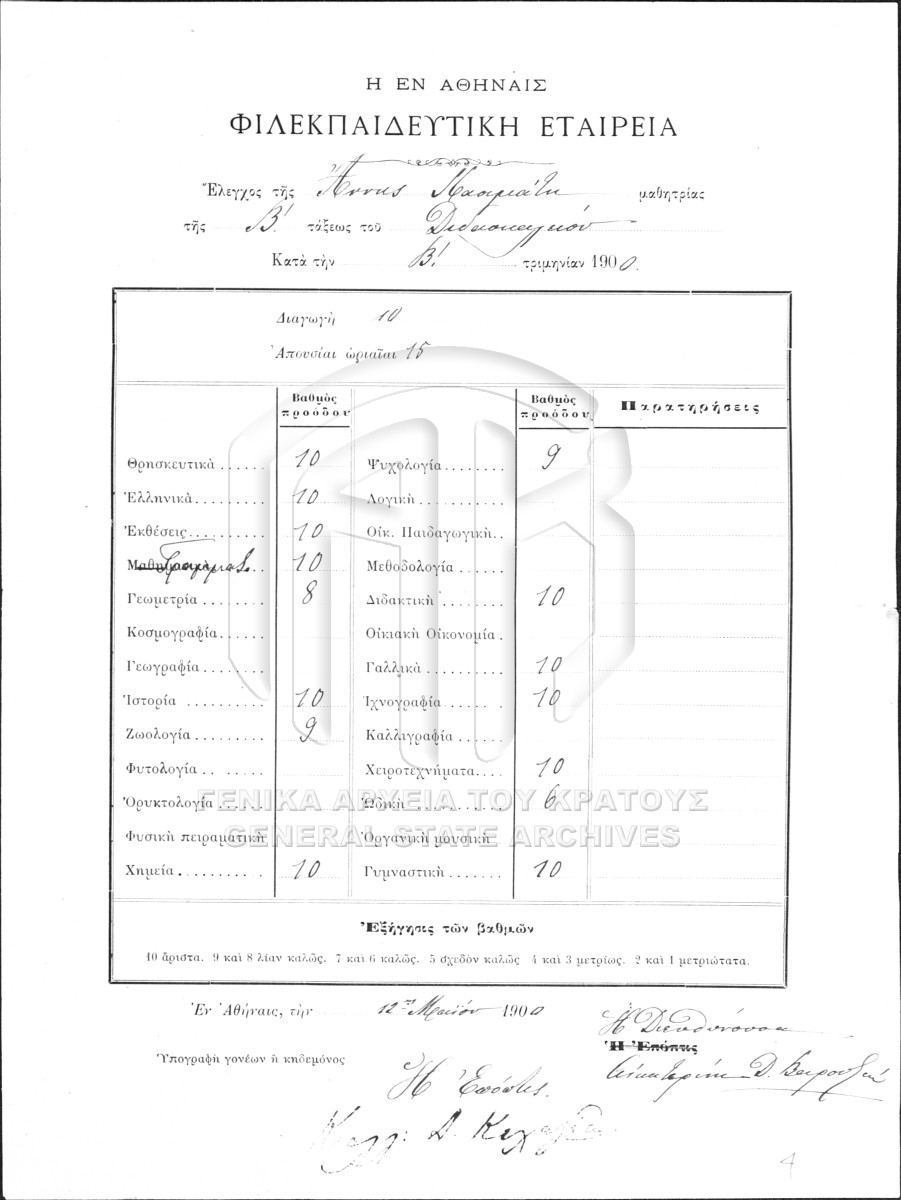 Η ΕΝ ΑΘΗΝΑΙΣ
ΦΙΛΕΚΠΑΙΔΕΥΤΙΚΗ ΕΤΑΙΡΕΙΑ
Ἔλεγχος τῆς Ἄννης μαθητρίας
τῆς Β! τάξεως τοῦ Διδασκαλείου
Κατὰ τὴν Β! τριμηνίαν 1900.
Διαγωγὴ 10
Ἀπουσίαι ὡριαῖαι 15
Βαθμὸς προόδου Βαθμὸς προόδου Παρατηρήσεις
Θρησκευτικὰ ...... 10 Ψυχολογία ........ 9
Ἑλληνικὰ ......... 10 Λογικὴ ...........
Ἐκθέσεις ......... 10 Οἰκ. Παιδαγωγικὴ ..
10 Μεθοδολογία ......
Γεωμετρία ........ 8 Διδακτικὴ ........ 10
Κοσμογραφία ...... Οἰκιακὴ Οἰκονομία .
Γεωγραφία ........ Γαλλικὰ .......... 10
Ἱστορία .......... 10 Ἰχνογραφία ....... 10
Ζωολογία ......... 9 Καλλιγραφία ......
Φυτολογία .. ...... Χειροτεχνήματα .... 10
Ὀρυκτολογία ...... Ὠδικὴ ............ 6
Φυσικὴ πειραματικὴ Ὀργανικὴ μουσικὴ
Χημεία ........... 10 Γυμναστικὴ ....... 10
ΓΕΝΙΚΑ ΑΡΧΕΙΑ ΤΟΥ ΚΡΑΤΟΥΣ
GENERAL STATE ARCHIVES
Ἐξήγησις τῶν βαθμῶν
10 ἄριστα. 9 καὶ 8 λίαν καλῶς. 7 καὶ 6 καλῶς. 5 σχεδὸν καλῶς 4 καὶ 3 μετρίως. 2 καὶ 1 μετριώτατα.
Ἐν Ἀθήναις, τὴν 12 Μαΐου 1900
Ἡ Διευθύνουσα
Ἡ Ἐπόπτις
Ὑπογραφὴ γονέων ἢ κηδεμόνος
Αἰκατερίνη Δ.
Ἡ Ἐπόπτις.
4